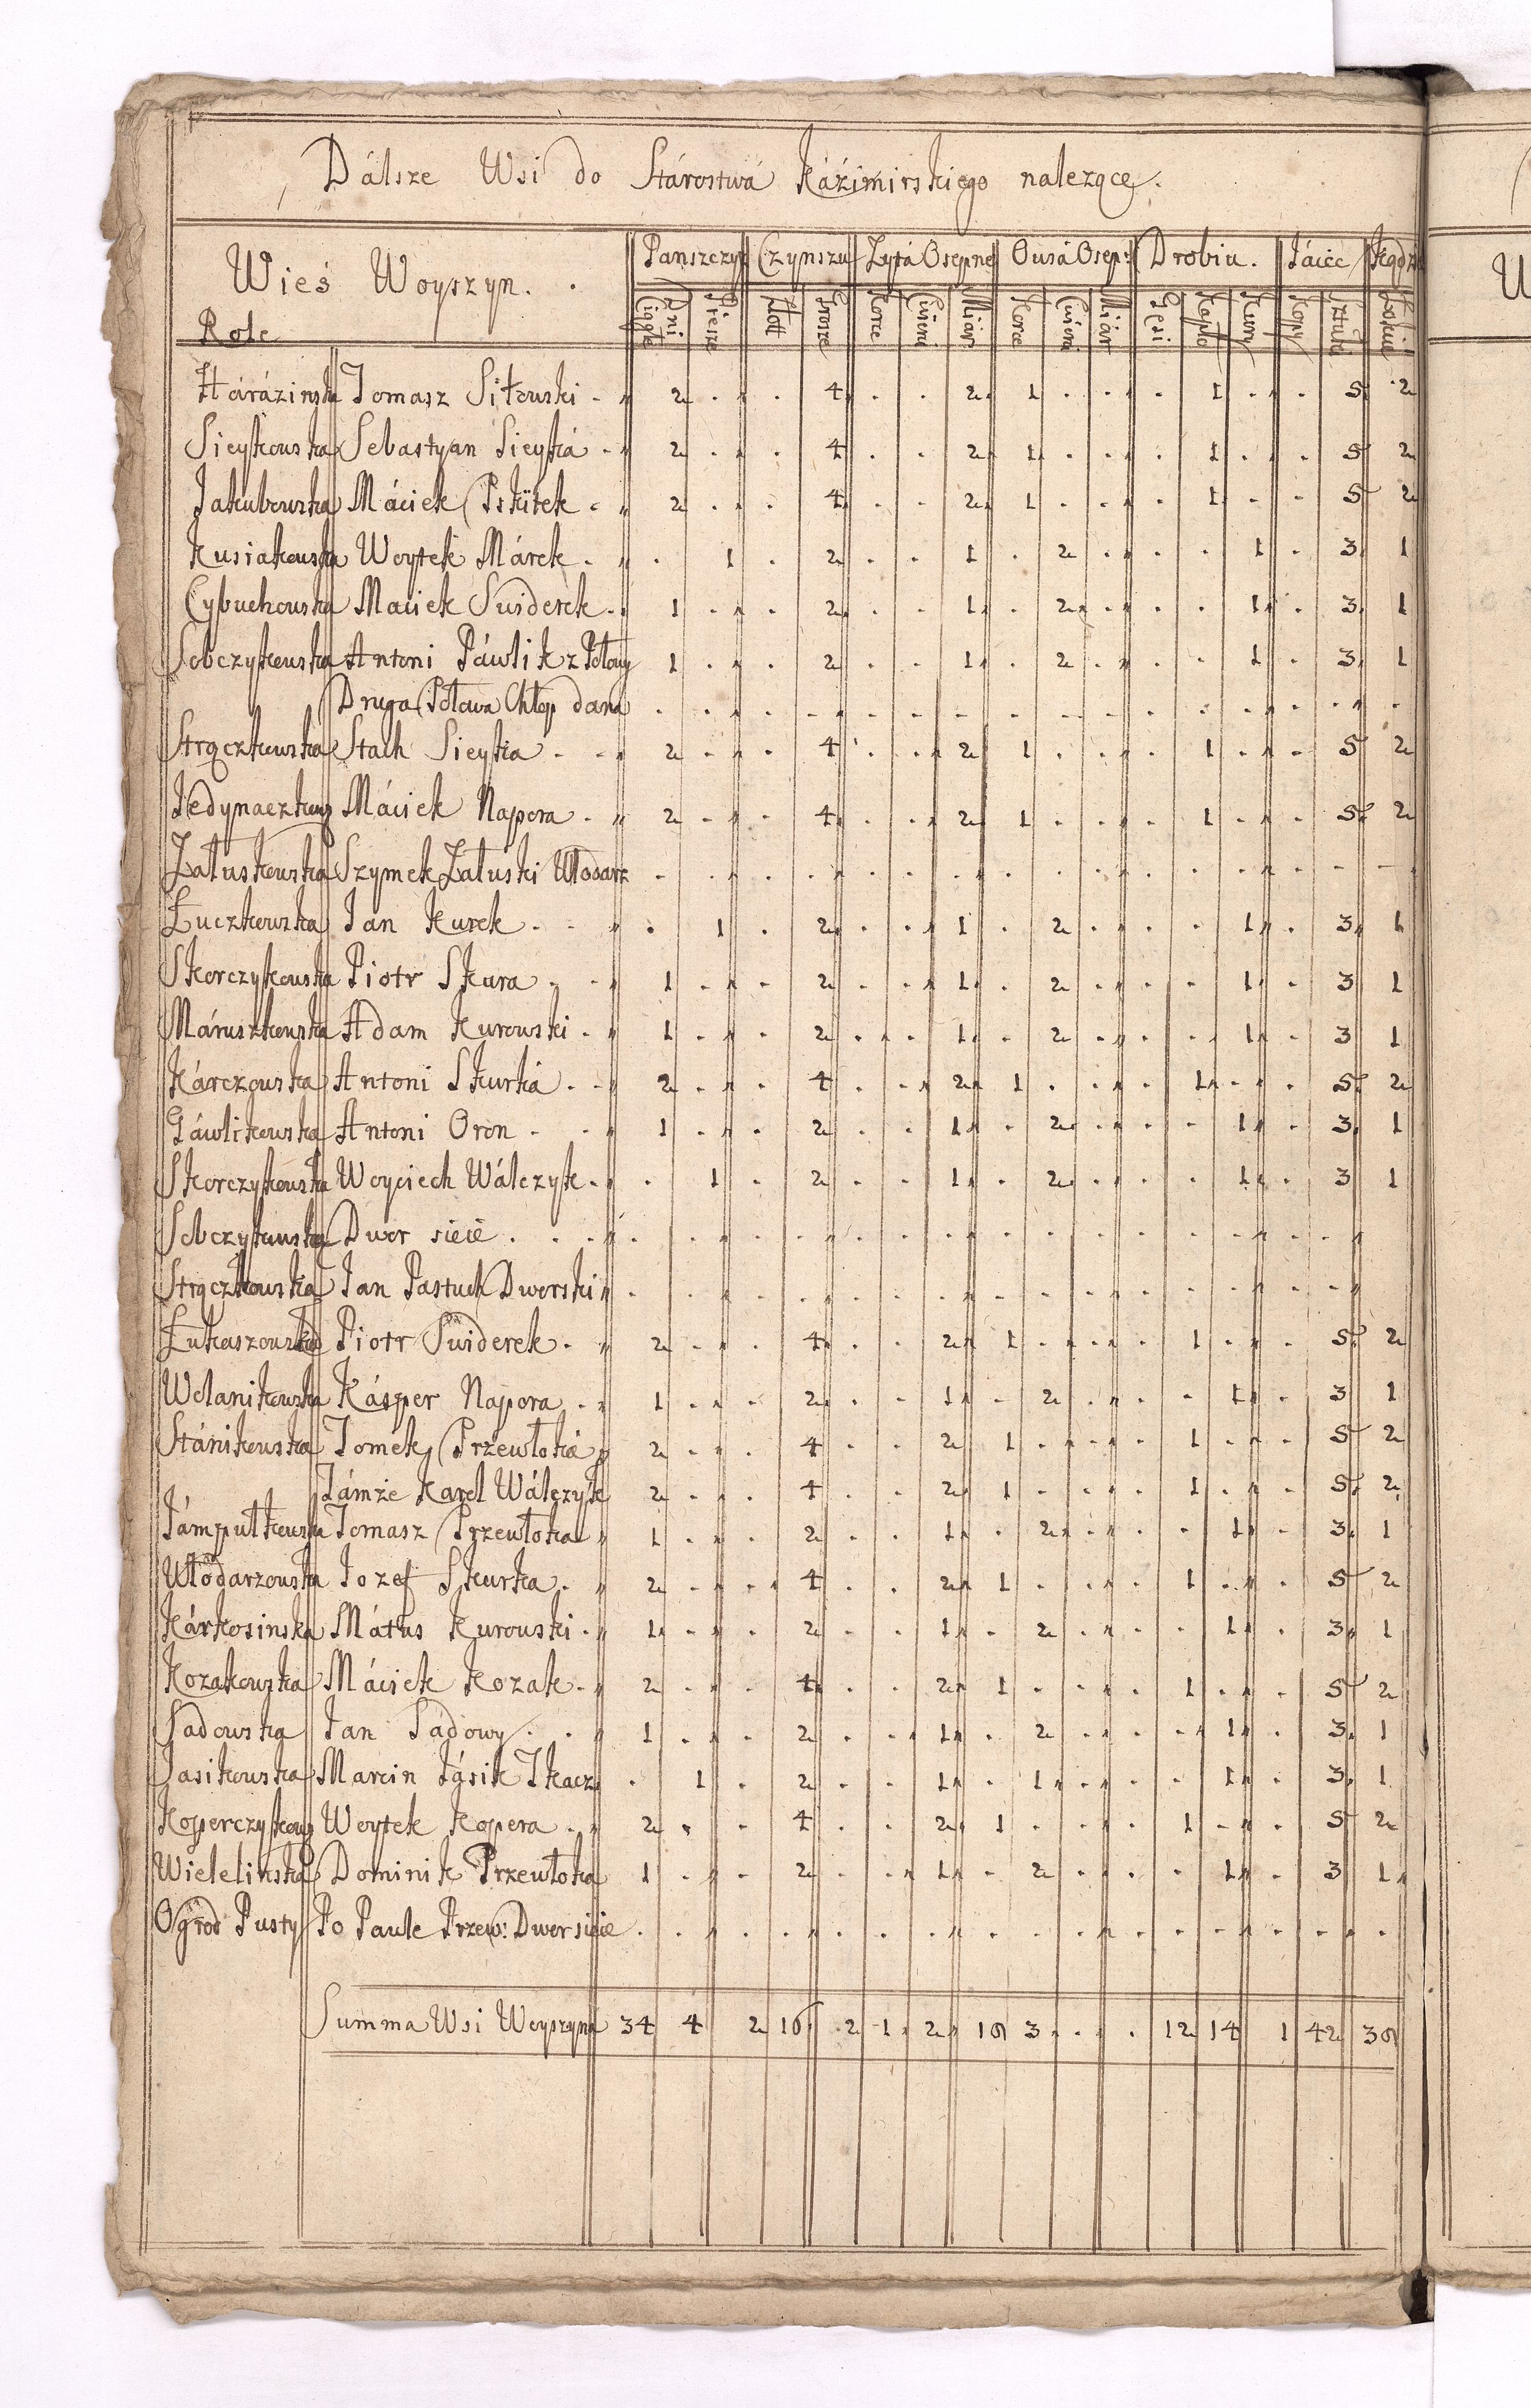 Dálsze Wsi do Stárostwá Káźimirskiego nalezące.
Wieś Woyszyn. Panszczyz Czynszu Zytá Osepne Owsá Osep: Drobiu. Iáiec Przędzi
Role Dni Ciągłe Piesze Złott Grosze Korce Cwierci Miar Korce Cwierci Miar Gęsi Kapło Kury Kopy Sztuk Łokcie
Harázinska Tomasz Sitowski 2 4 2 1 1 5 2
Sieykowska Sebastyan Sieyká 2 4 2 1 1 5 2
Jakubowska Máciek Pskitek 2 4 2 1 1 5 2
Kusiakowska Woytek Márek 1 2 1 2 1 3 1
Cybuchowska Maciek Swiderek 1 2 1 2 1 3 1
Sobczykowska Antoni Páwlik z Połowy 1 2 1 2 1 3 1
Druga Połowa Chłop dana
Strączkowska Stach Sieyka 2 4 2 1 1 5 2
Jedynaczkows Máciek Napora 2 4 2 1 1 5 2
Załuskowska Szymek Załuski Włodarz
Łuczkowska Ian Kurek 1 2 1 2 1 3 1
Skorczykowska Piotr Skura 1 2 1 2 1 3 1
Máruszkowska Adam Kurowski 1 2 1 2 1 3 1
Kárczowska Antoni Skurká 2 4 2 1 1 5 2
Gáwlikowska Antoni Oron 1 2 1 2 1 3 1
Skorczykowska Woyciech Wálczyk 1 2 1 2 1 3 1
Sobczykowska Dwor sieie
Strączkowska Ian Pastuch Dworski
Łukaszowska Piotr Swiderek 2 4 2 1 1 5 2
Wolanikowska Kásper Napora 1 2 1 2 1 3 1
Stánikowska Tomek Przewłoká 2 4 2 1 1 5 2
Támże Karol Wálczyk 2 4 2 1 1 5 2
Pámpułkowska Tomasz Przewłoka 1 2 1 2 1 3 1
Włodarzowska Iozef Skurka 2 4 2 1 1 5 2
Kárkosinska Mátus Kurowski 1 2 1 2 1 3 1
Kozakowska Máciek Kozak 2 4 2 1 1 5 2
Sadowska Ian Sadowy 1 2 1 2 1 3 1
Jasikowska Marcin Jąsik Tkacz 1 2 1 1 1 3 1
Koperczykows Woytek Kopera 2 4 2 1 1 5 2
Wielelinska Dominik Przewłoka 1 2 1 2 1 3 1
Ogrod Pusty Po Pawle Przew: Dwor sieie
Summa Wsi Woyszyna 34 4 2 16 2 1 2 16 3 12 14 1 42 36